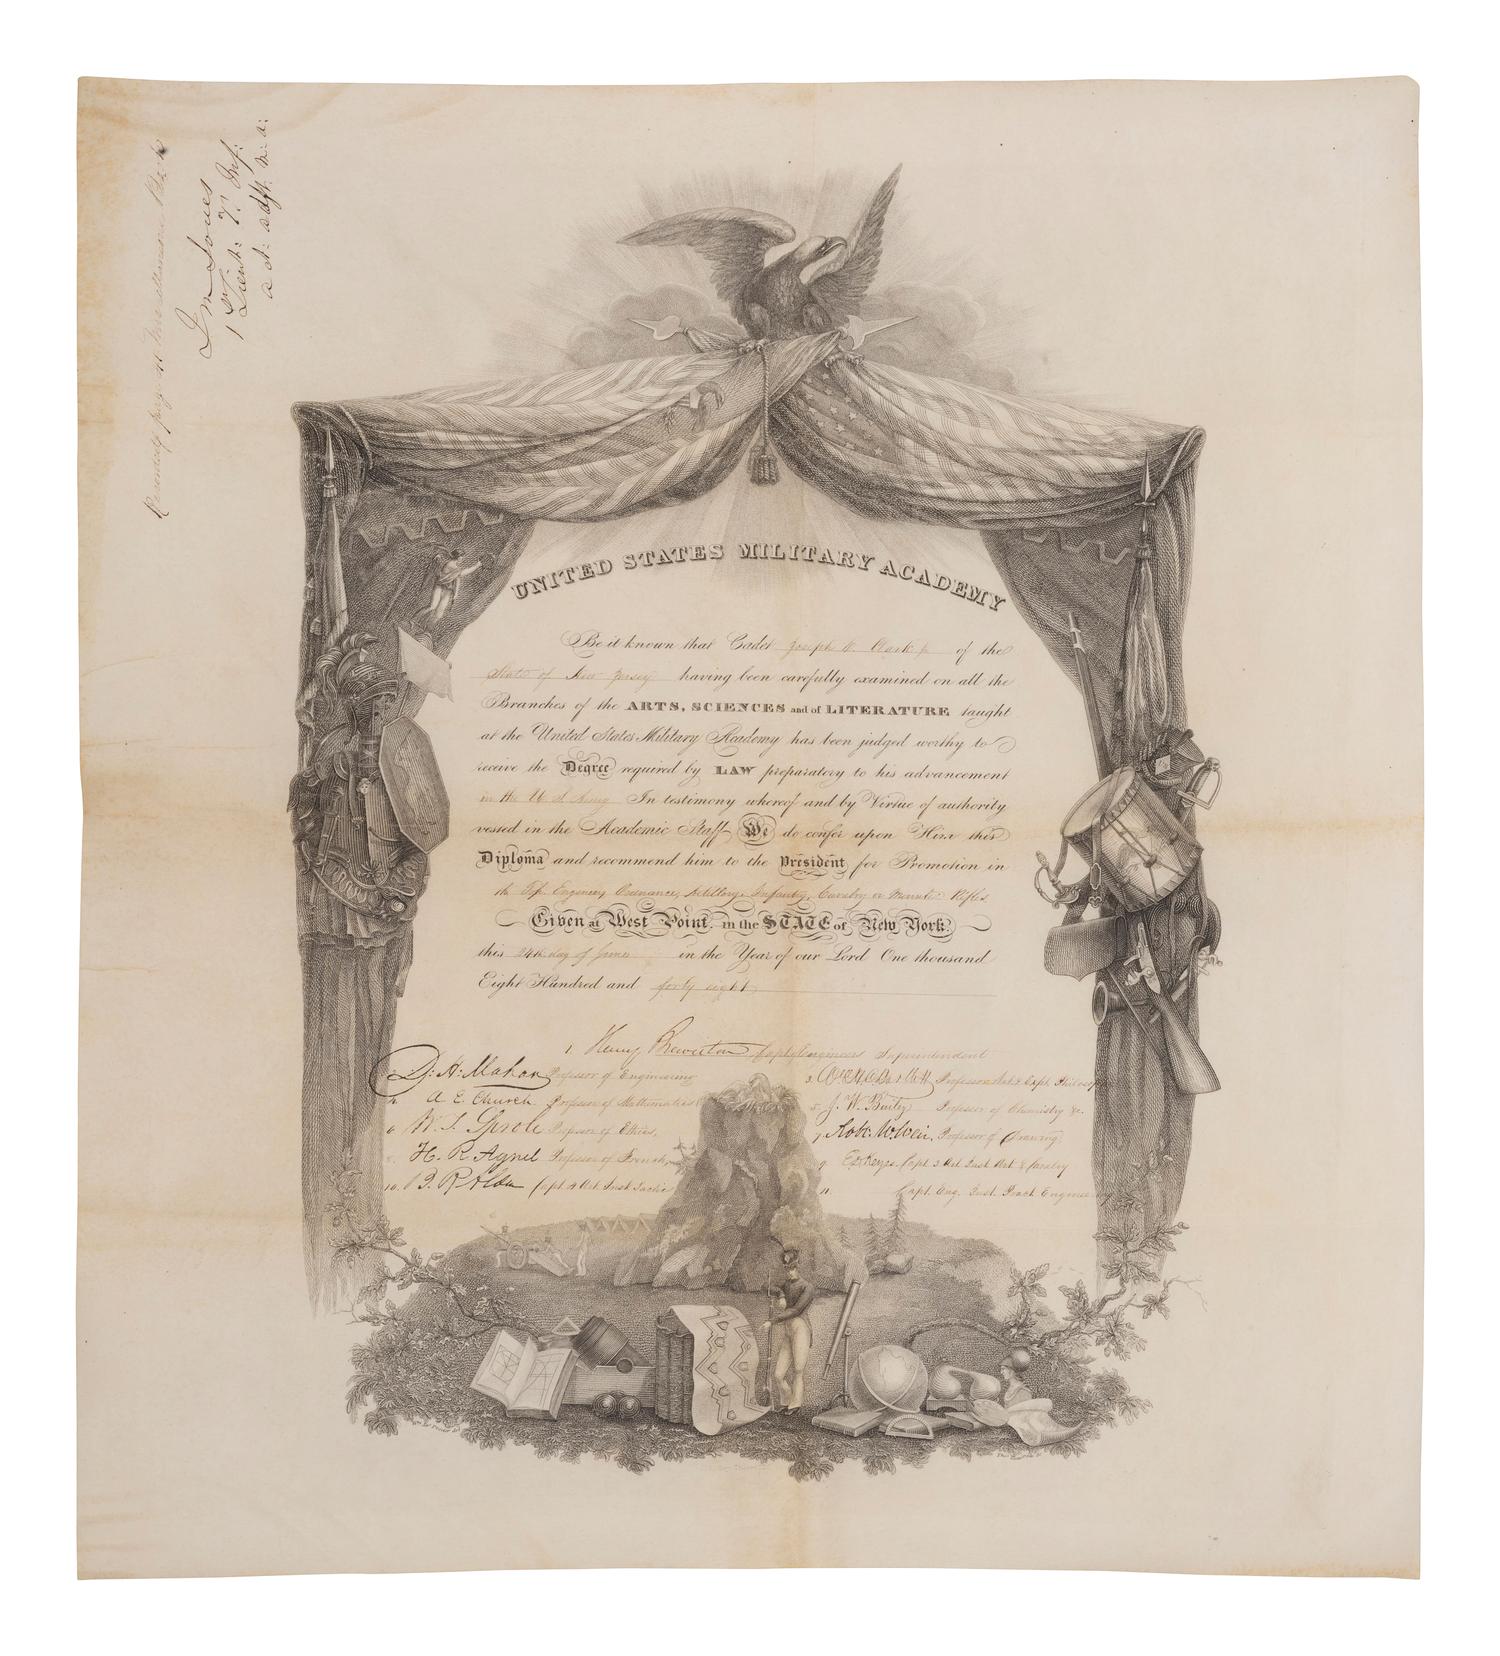 J M Jones
1st Lieut: 7: Inf:
act: adjt. M. A:
UNITED STATES MILITARY ACADEMY
Be it known that Cadet Joseph W. Clark jr of the
State of New Jersey having been carefully examined on all the
Branches of the ARTS, SCIENCES and of LITERATURE taught
at the United States Military Academy has been judged worthy to
receive the Degree required by LAW preparatory to his advancement
in the U S Army In testimony whereof and by Virtue of authority
vested in the Academic Staff We do confer upon Him this
Diploma and recommend him to the President for Promotion in
the Top. Engineers, Ordnance, Artillery, Infantry, Cavalry or Mounted Rifles
Given at West Point, in the STATE of New York
this 24th day of June in the Year of our Lord One thousand
Eight Hundred and forty eight
1. Henry Brewerton Capt Engineers Superintendent
D. H. Mahan Professor of Engineering
3. W H C Bartlett Professor Nat & Exp. Philosop
4. A. E. Church. Professor of Mathematics
5. J. W. Bailey Professor of Chemistry &c.
6. W. T. Sprole Professor of Ethics,
7. Robt. W. Weir, Professor of Drawing
8. H. R. Agnel Professor of French,
9. E D Keyes. Capt 3 Art Inst Art & Cavalry
10. B. R. Alden Capt 4 Art Inst Tactics
11. Capt. Eng. Inst. Pract Enginee